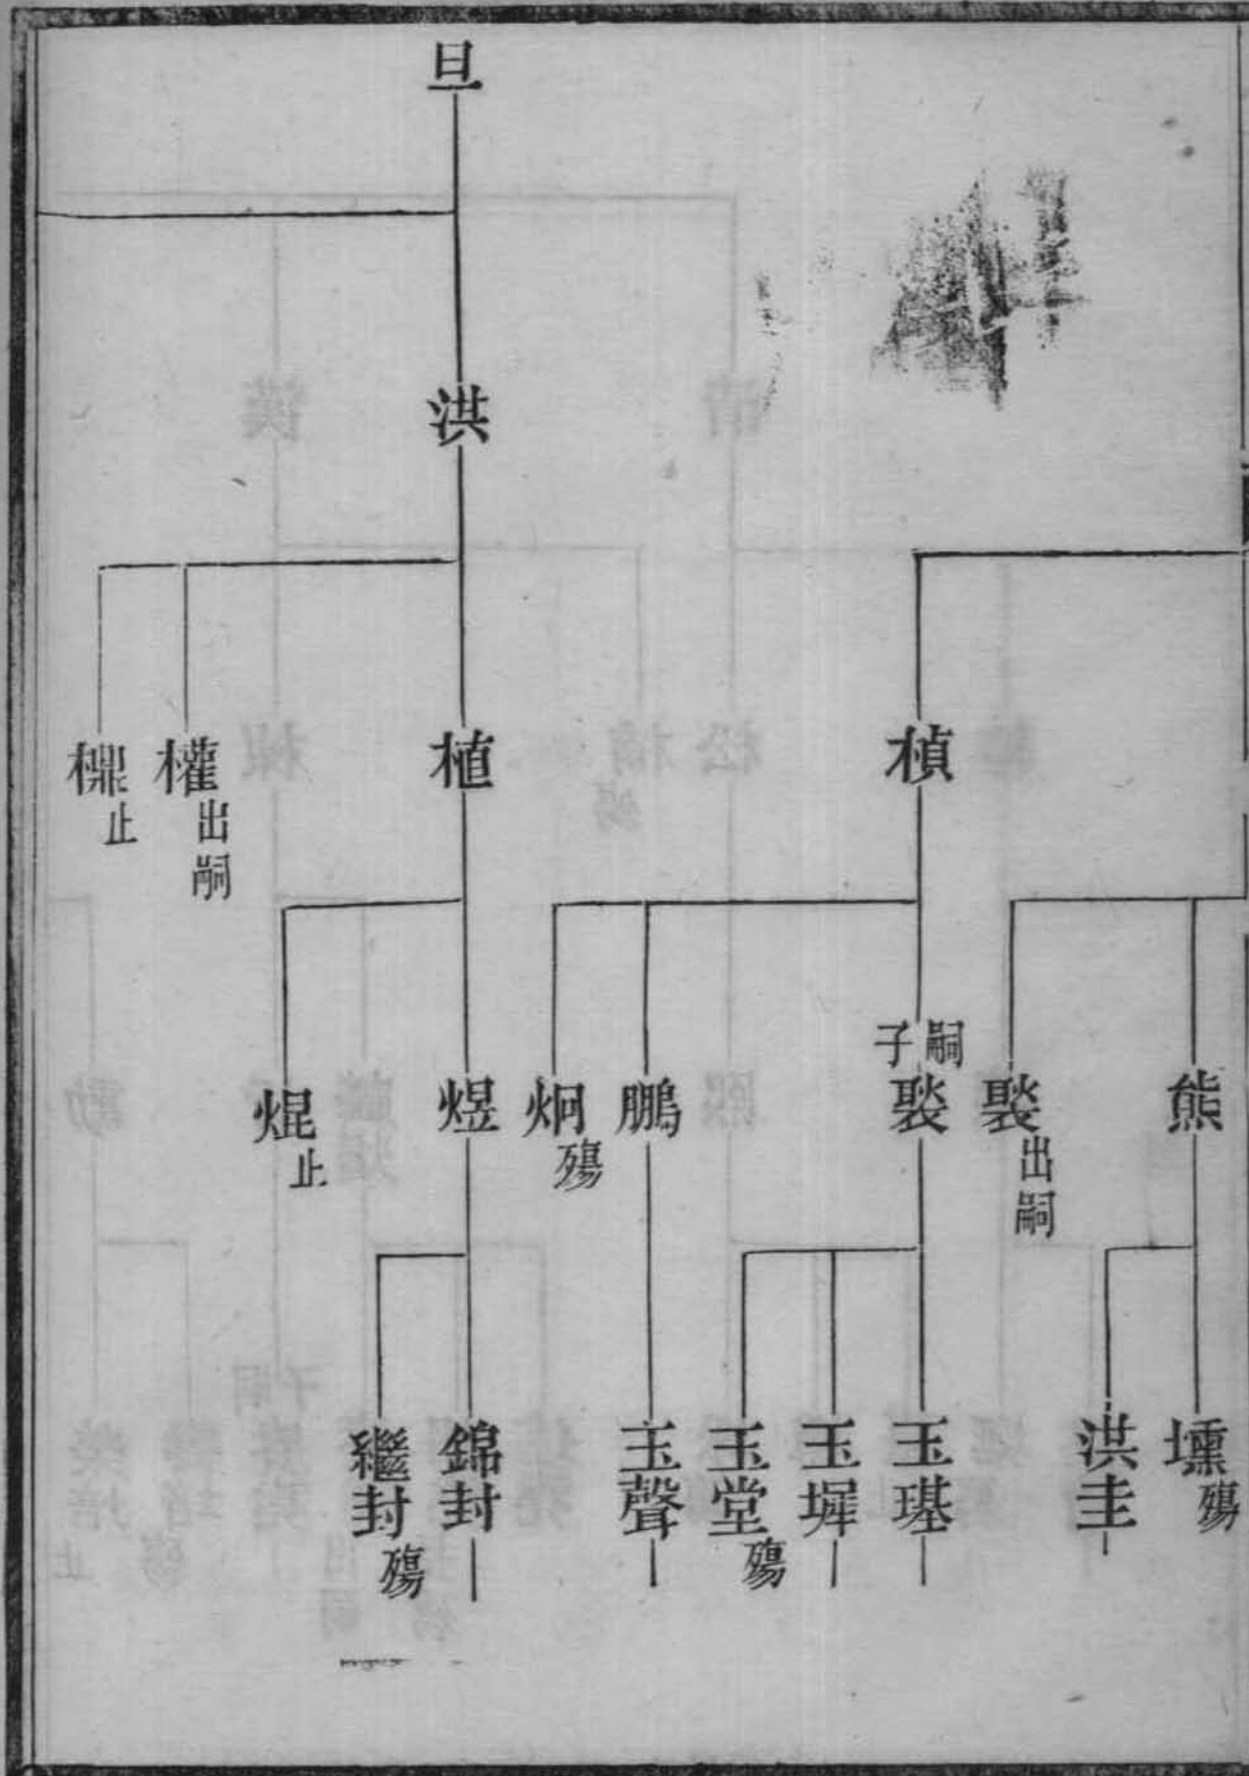 旦
洪
楨
植
權 出嗣
㮯 止
熊
褧 出嗣
嗣子 褧
鵬
炯 殤
煜
焜 止
壎 殤
洪圭
玉璂
玉墀
玉堂 殤
玉聲
錦封
繼封 殤